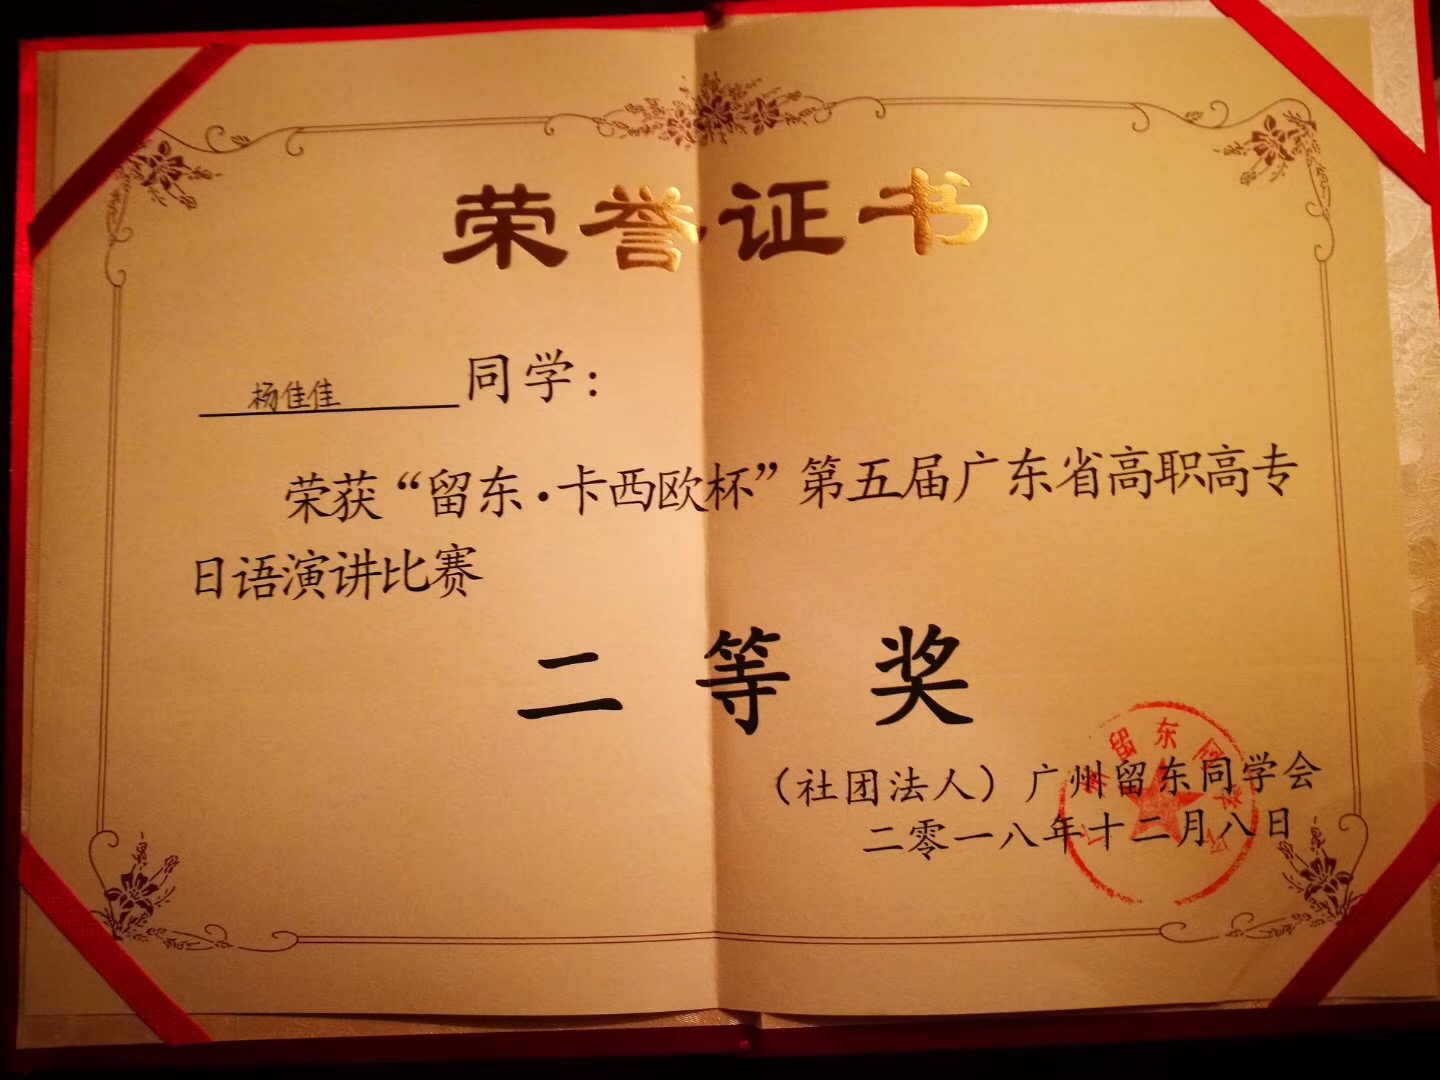 荣誉证书
杨佳佳 同学：
荣获“留东·卡西欧杯”第五届广东省高职高专
日语演讲比赛
二等奖
（社团法人）广州留东同学会
二零一八年十二月八日
留东同学会